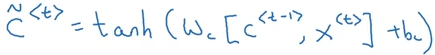 c̃^<t> = tanh (W_c [c^<t-1>, x^<t>] + b_c)